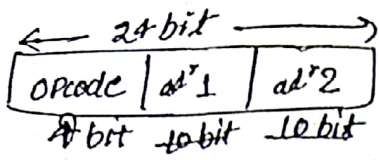 24 bit
opcode adr1 adr2
4 bit 10 bit 10 bit